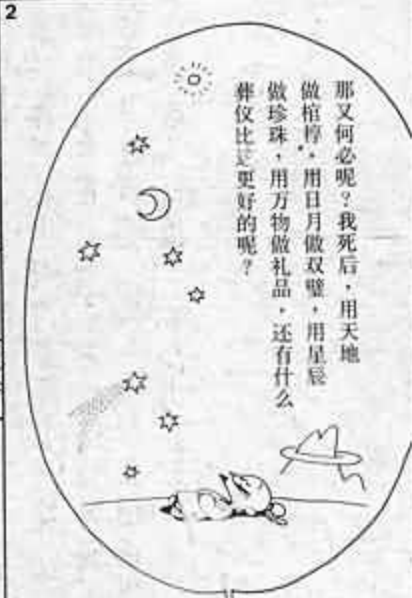 2
那又何必呢？我死后，用天地
做棺椁，用日月做双璧，用星辰
做珍珠，用万物做礼品，还有什么
葬仪比这更好的呢？